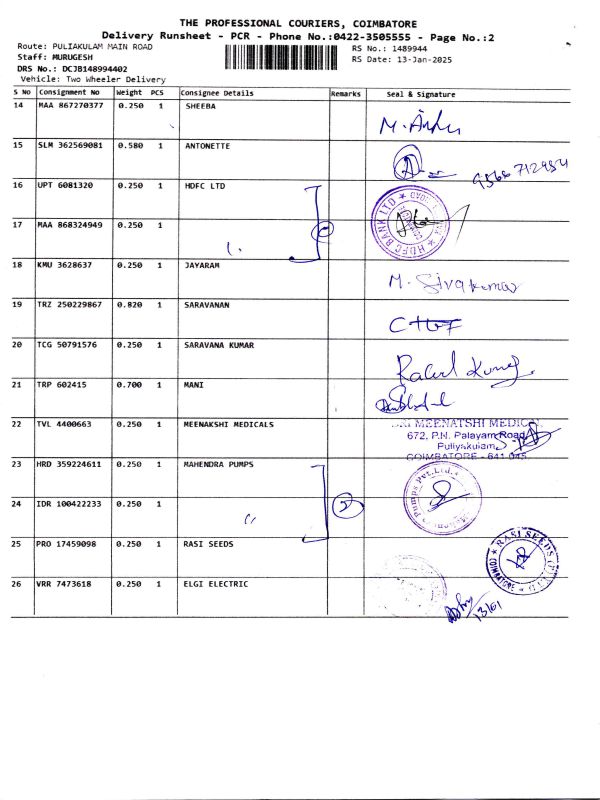 THE PROFESSIONAL COURIERS, COIMBATORE
Delivery Runsheet - PCR - Phone No.:0422-3505555 - Page No.:2
Route: PULIAKULAM MAIN ROAD
Staff: MURUGESH
DRS No.: DCJB148994402
Vehicle: Two Wheeler Delivery
RS No.: 1489944
RS Date: 13-Jan-2025
S No Consignment No Weight PCS Consignee Details Remarks Seal & Signature
14 MAA 867270377 0.250 1 SHEEBA
15 SLM 362569081 0.580 1 ANTONETTE
16 UPT 6081320 0.250 1 HDFC LTD
HDFC BANK LTD
17 MAA 868324949 0.250 1
18 KMU 3628637 0.250 1 JAYARAM M. Sivakumar
19 TRZ 250229867 0.820 1 SARAVANAN
20 TCG 50791576 0.250 1 SARAVANA KUMAR
21 TRP 602415 0.700 1 MANI
22 TVL 4400663 0.250 1 MEENAKSHI MEDICALS
SRI MEENATSHI MEDICALS
672, P.N. Palayam Road
Puliyakulam
COIMBATORE - 641 045
23 HRD 359224611 0.250 1 MAHENDRA PUMPS
Pumps Pvt. Ltd.
24 IDR 100422233 0.250 1 2
25 PRO 17459098 0.250 1 RASI SEEDS
RASI SEEDS (P) LTD
COIMBATORE
26 VRR 7473618 0.250 1 ELGI ELECTRIC
13/01